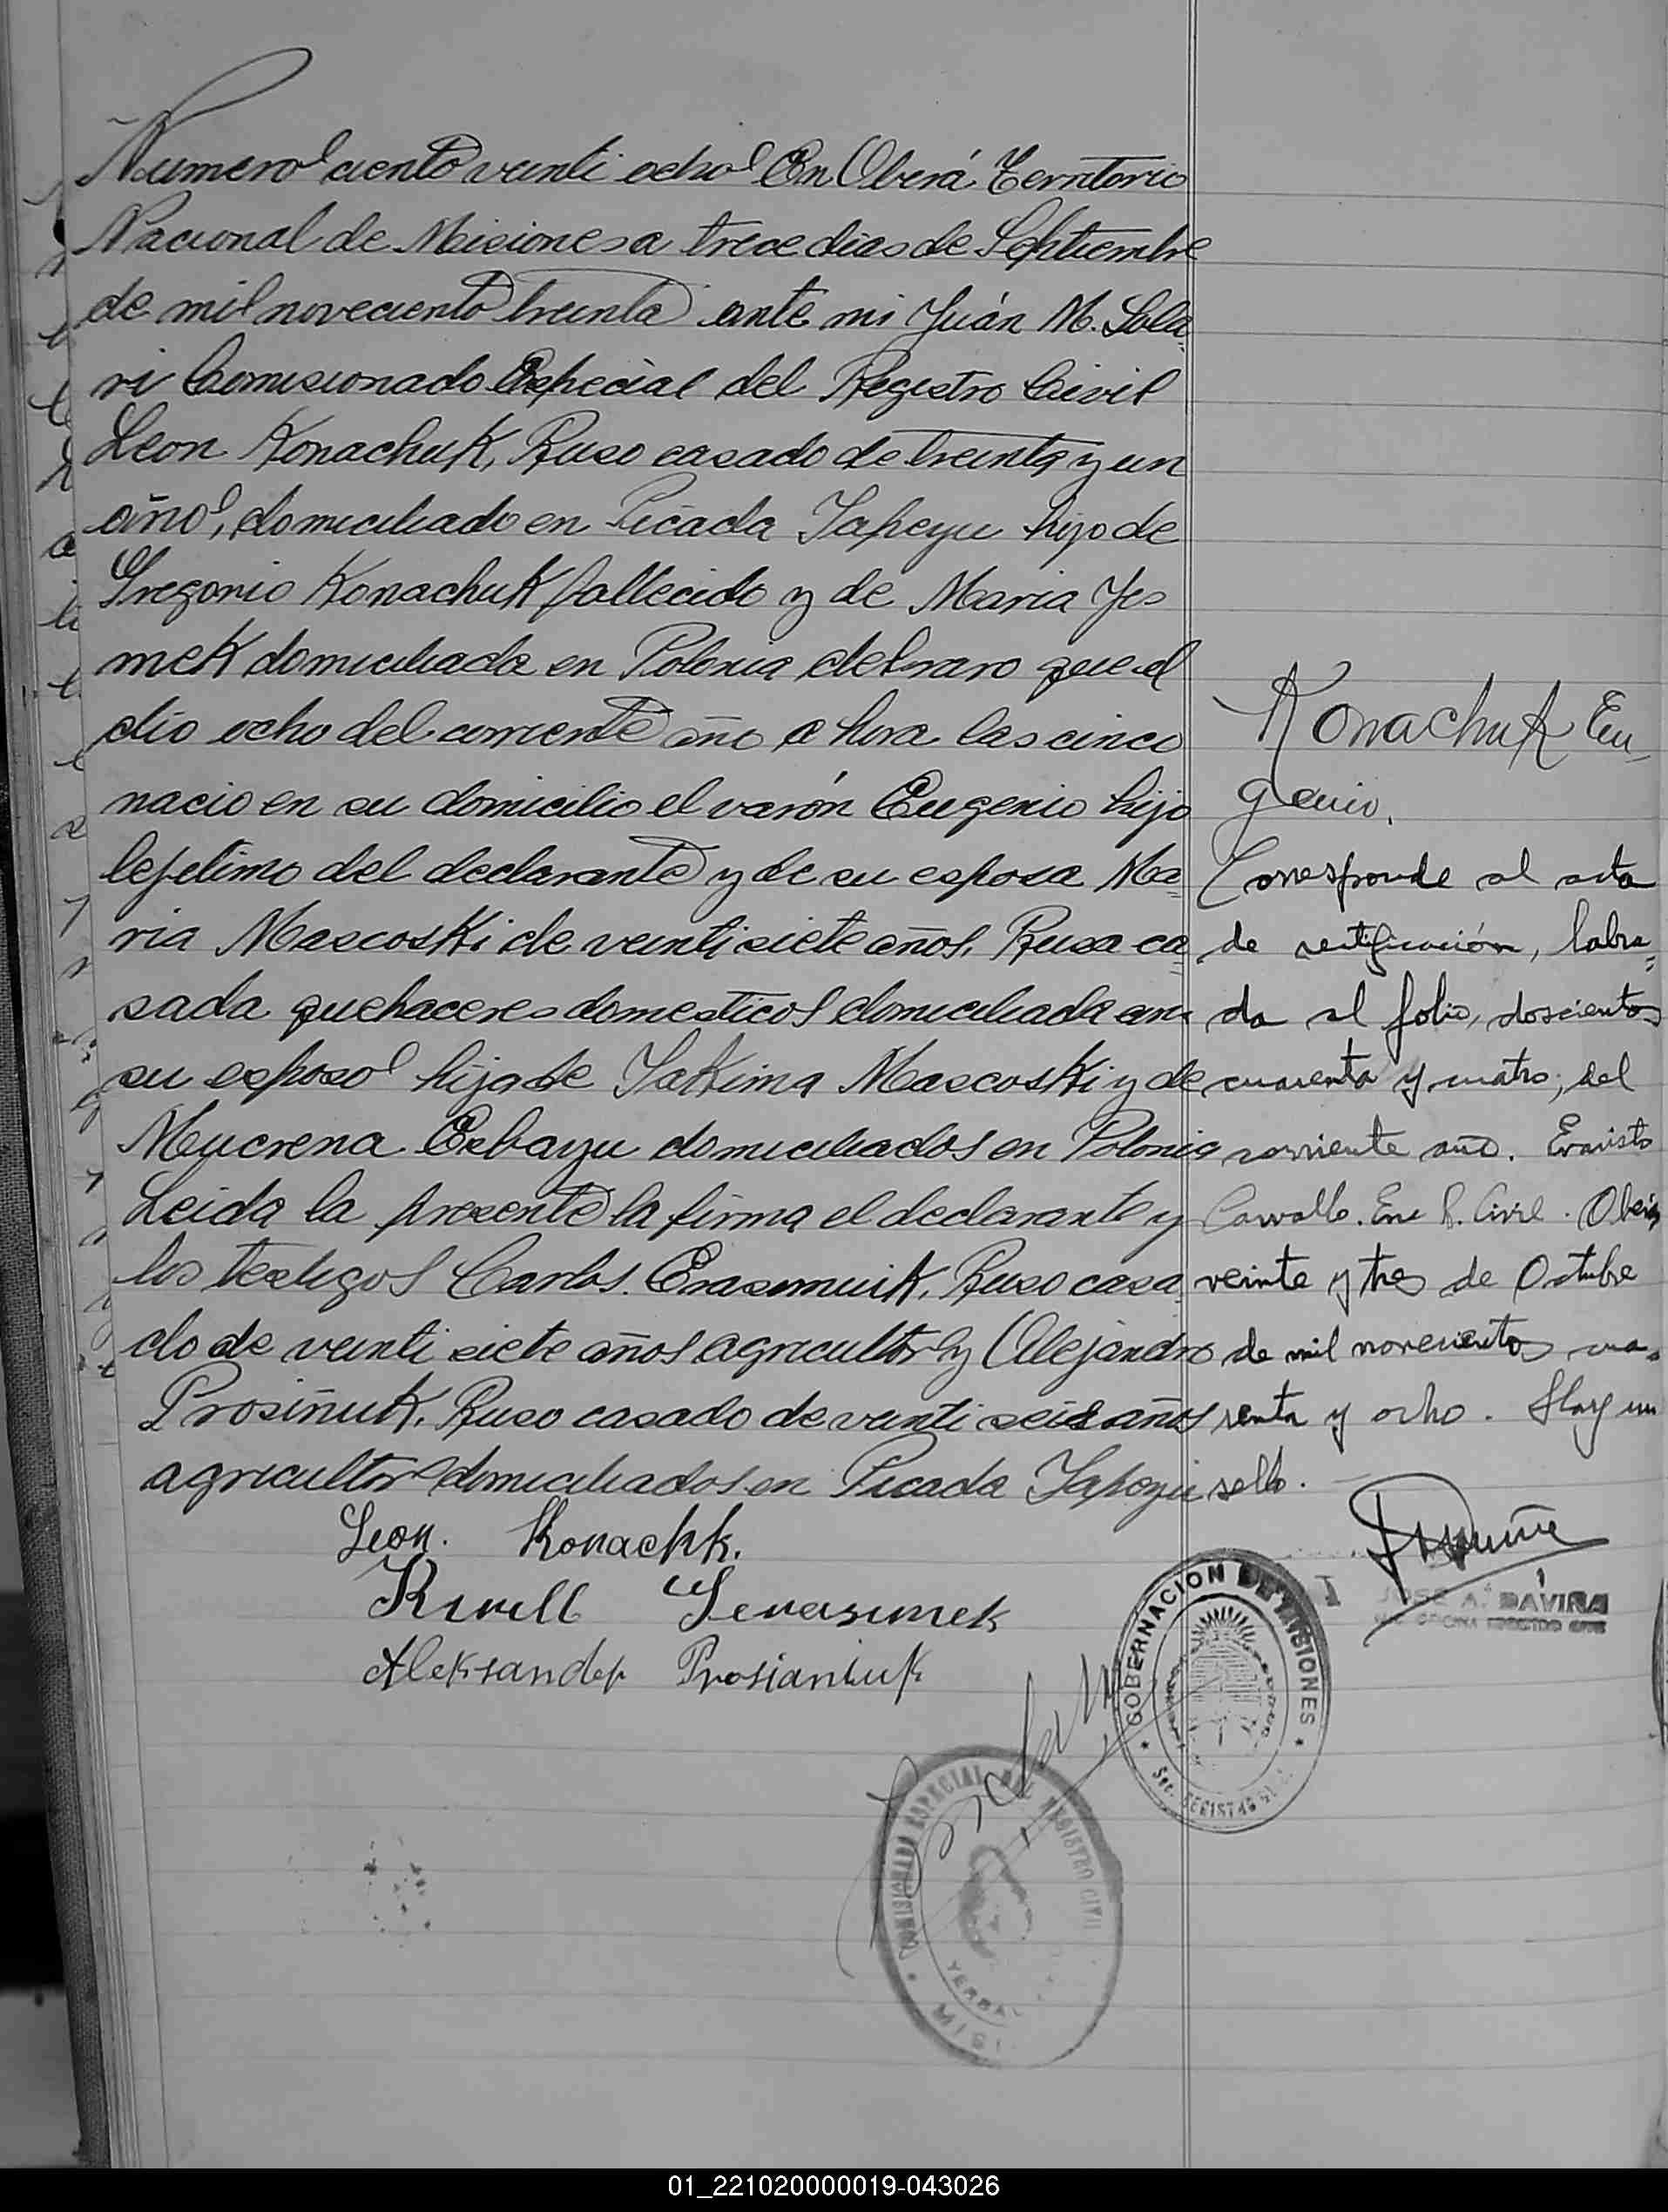 Numero ciento veinti ocho En Oberá Territorio
Nacional de Misiones a trece dias de Septiembre
de mil noveciento treinta ante mi Juán M. Sola=
ri Comisionado Especial del Registro Civil
Leon Konachuk, Ruso casado de treinta y un
año, domiciliado en Picada Yapeyu hijo de
Gregorio Konachuk fallecido y de Maria Je
mek domiciliada en Polonia que el
dio ocho del corriente año a hora las cinco
nacio en su domicilio el varón Eugenio hijo
lejetimo del declarante y de su esposa Ma=
ria Mascoski de veinti siete años, Rusa ca=
sada quehaceres domesticos domiciliada con
su esposo hija de Yakima Mascoski y de
Mucrena Erbayu domiciliados en Polonia
Leida la presente la firma el declarante y
los testigos Carlos. Erasimuik, Ruso casa
do de veinti siete años agricultor y Alejandro
Prosiñuk, Ruso casado de veinti seis años
agricultor domiciliados en Picada Yapeyu
Leon. Konachk.
Kirull Gerasimek
Aleksander Prosianiuk
Konachuk Eu-
genio.
Corresponde al acta
de rectificación, labra=
da al folio, doscientos
cuarenta y cuatro, del
corriente año. Evaristo
Carvallo. Enc R. Civil. Oberá
veinte y tres de Octubre
de mil novecientos cua=
renta y ocho. Hay un
sello.
JOSE A. DAVIRA
OFICINA REGISTRO CIVIL
GOBERNACION DE MISIONES
Sec. REGISTRO
COMISIONADO ESPECIAL DEL REGISTRO CIVIL
YERBAL
MISI
01_221020000019-043026